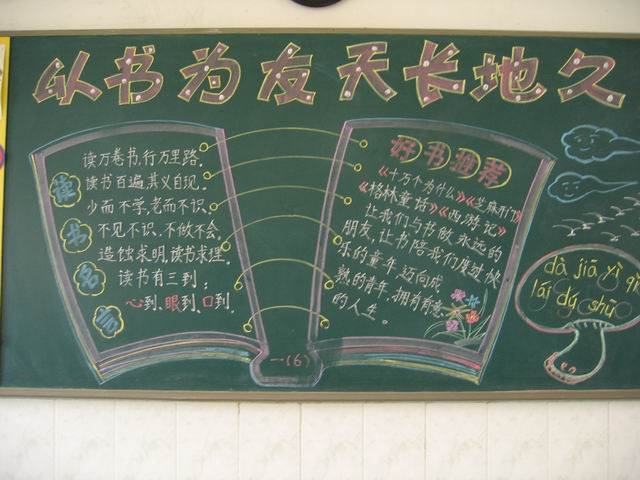 以书为友天长地久
读书名言
读万卷书,行万里路。
读书百遍,其义自现。
少而不学,老而不识。
不见不识、不做不会。
造蚀求明,读书求理。
读书有三到:
心到、眼到、口到.
好书推荐
《十万个为什么》《芝麻开门》
《格林童话》《西游记》
让我们与书做永远的
朋友,让书陪我们度过快
乐的童年,迈向成
熟的青年,拥有有意
的人生。
一(6)
dà jiā yì qǐ
lái dú shū